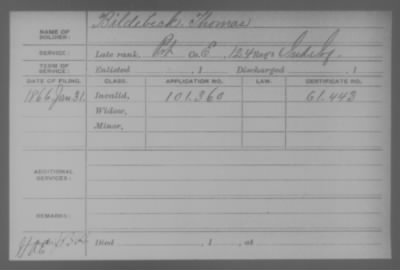 NAME OF SOLDIER: Bildebeck, Thomas
SERVICE: Late rank, Pvt Co. E, 124 Reg't Inds Inf.
TERM OF SERVICE: Enlisted , 1 Discharged , 1
DATE OF FILING. CLASS. APPLICATION NO. LAW. CERTIFICATE NO.
1866 Jan 31. Invalid, 101.360 61.443
Widow,
Minor,
ADDITIONAL SERVICES:
REMARKS:
Died , 1 , at